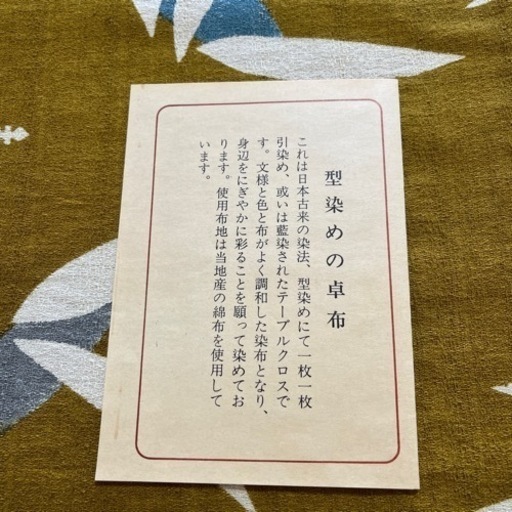 型染めの卓布
これは日本古来の染法、型染めにて一枚一枚
引染め、或いは藍染されたテーブルクロスで
す。文様と色と布がよく調和した染布となり、
身辺をにぎやかに彩ることを願って染めてお
ります。使用布地は当地産の綿布を使用して
います。